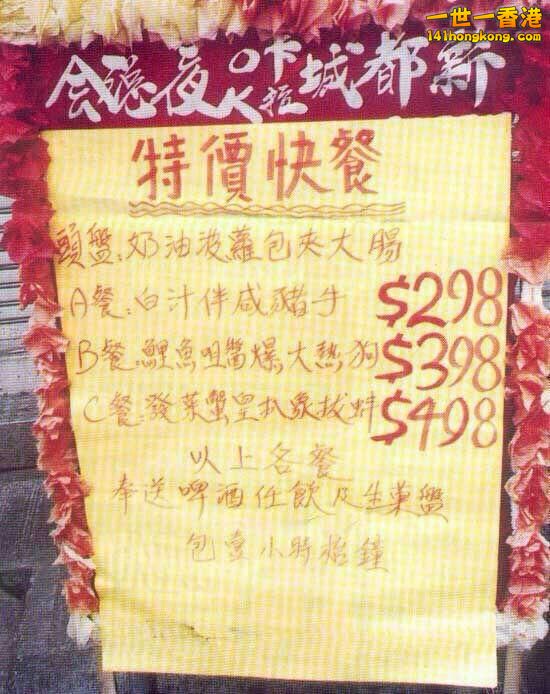 一世一香港
141hongkong.com
新都城卡拉OK夜總会
特價快餐
頭盤:奶油波蘿包夾大腸
A餐:白汁伴咸豬手 $298
B餐:鯉魚咀醬爆大熱狗 $398
C餐:發菜蟹皇扒象拔蚌 $498
以上各餐
奉送啤酒任飲及生菓盤
包壹小時枱鐘